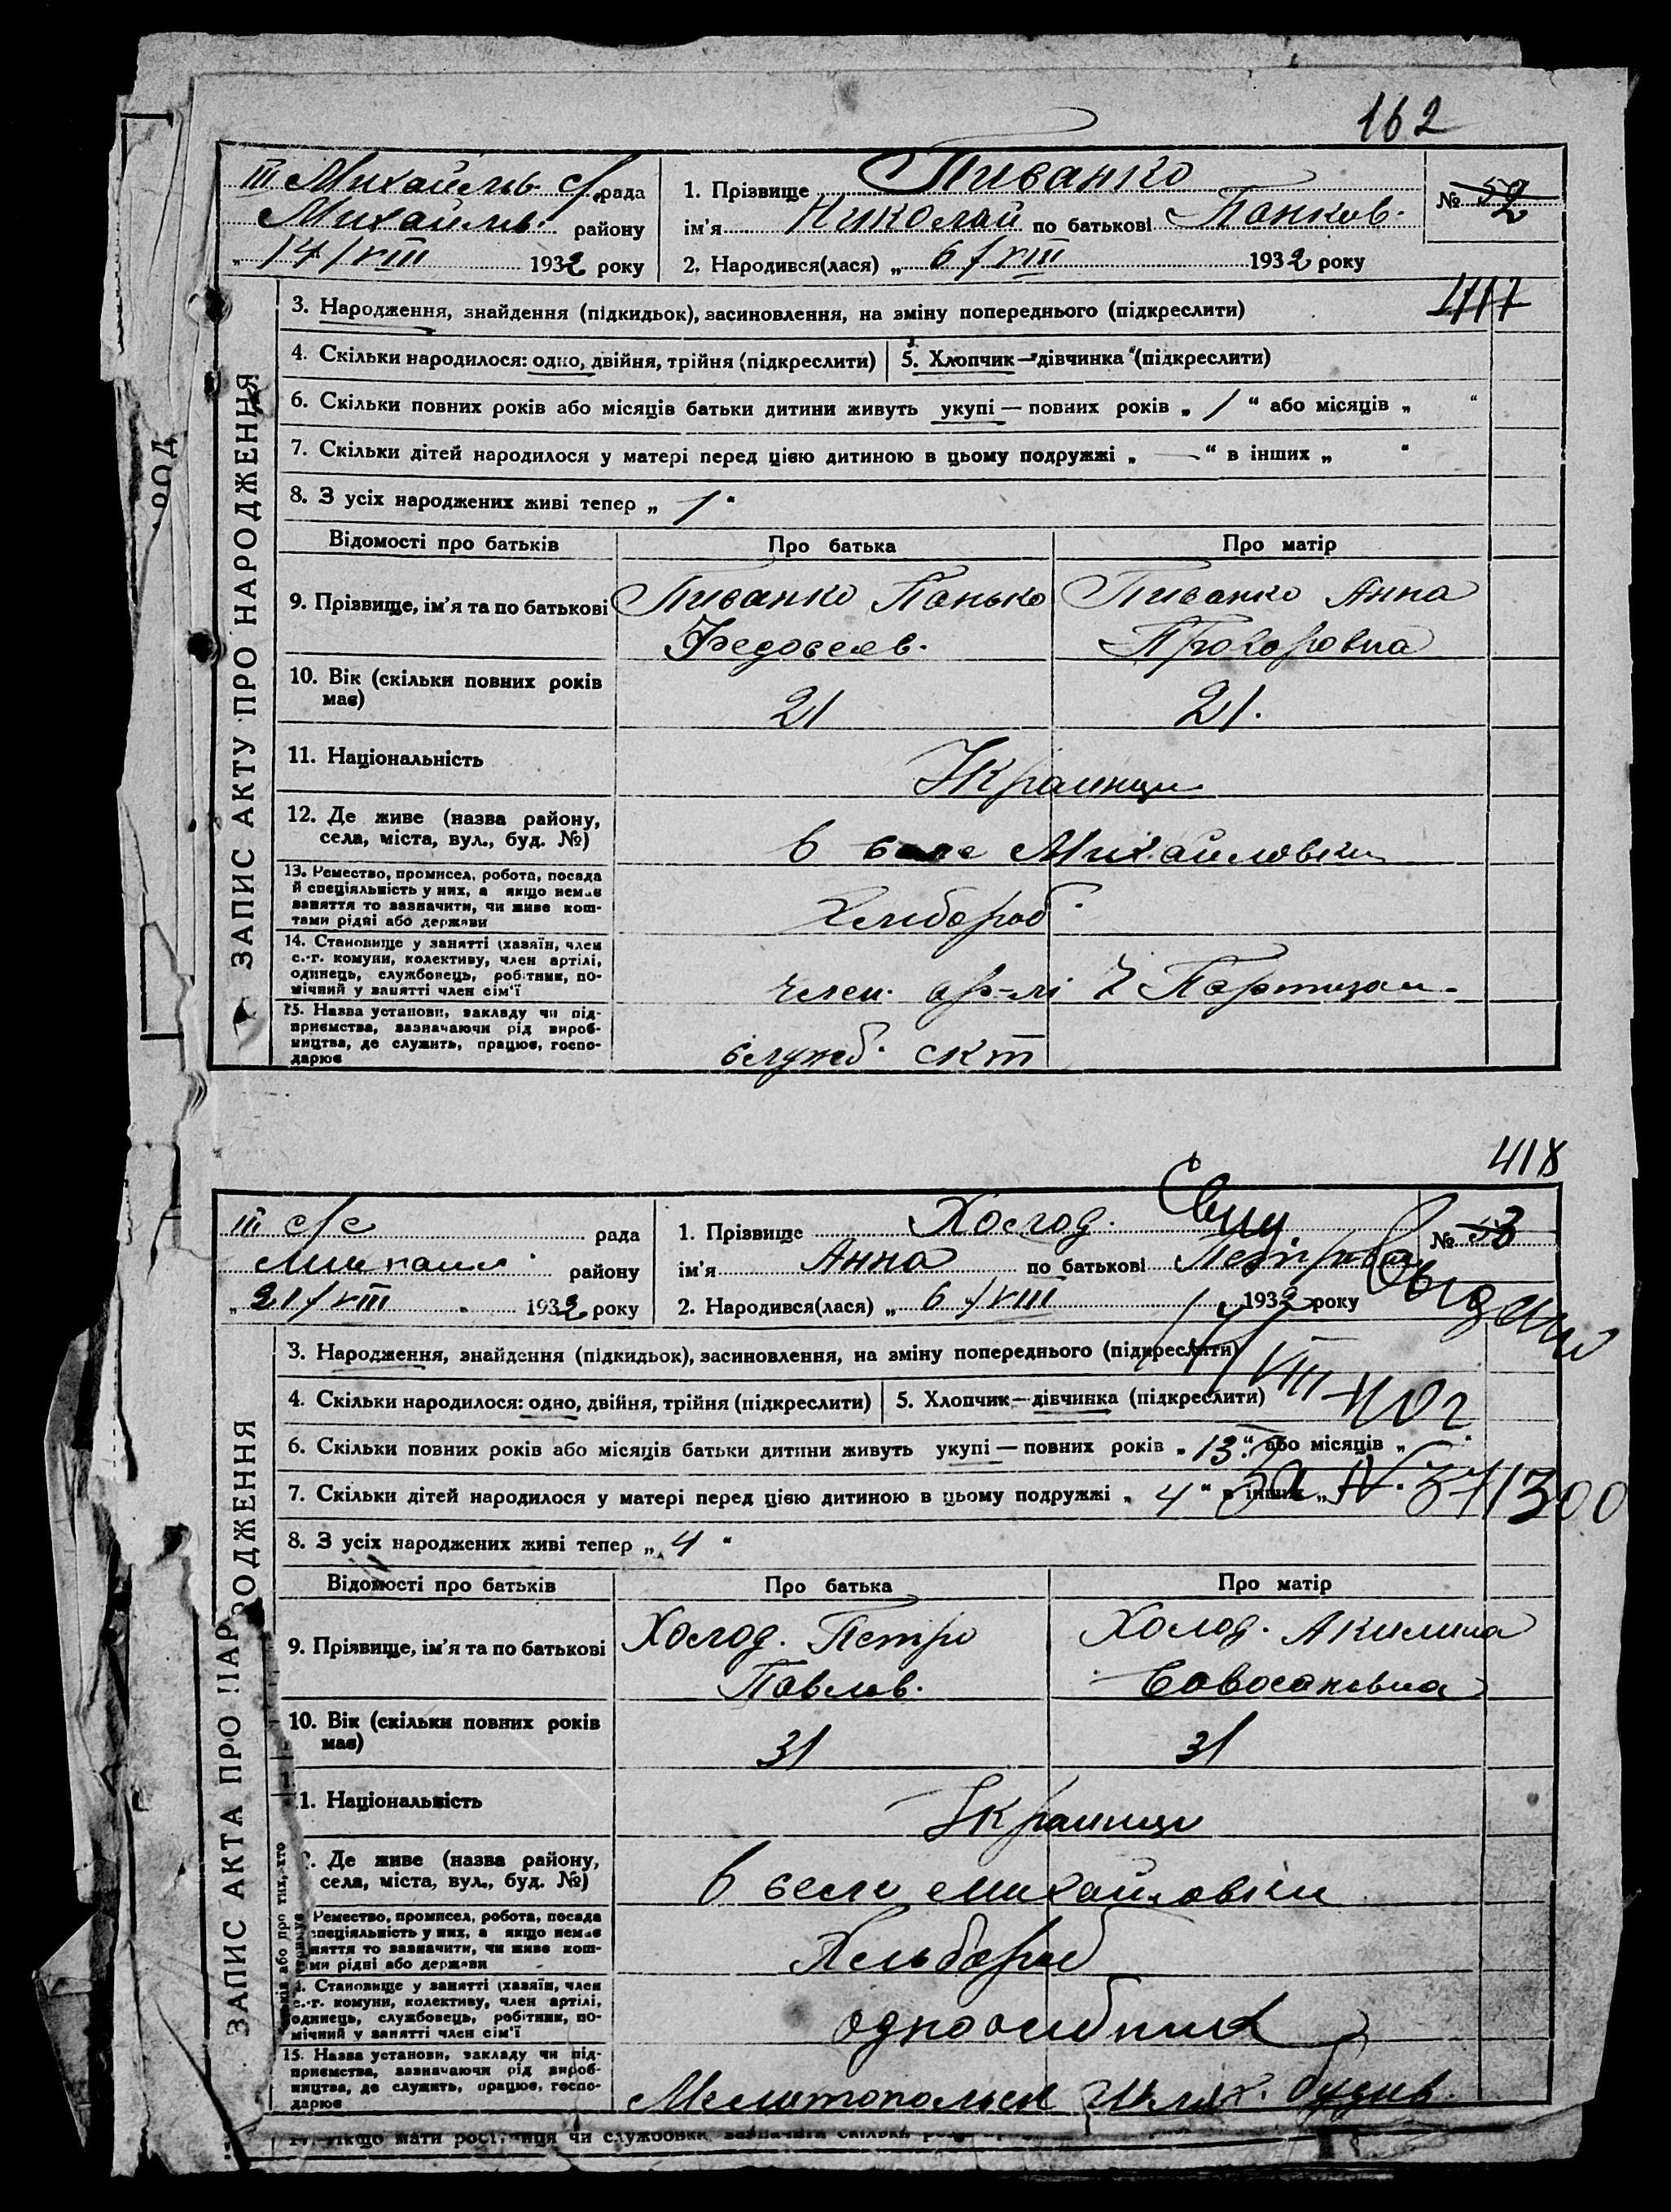 162
III Михайлів. с/рада
Михайлів. району
„ 14/VIII 1932 року
1. Прізвище Пиванко
ім'я Николай по батькові Панков.
2. Народився(лася) „ 6/VIII 1932 року
№ 52
417
ЗАПИС АКТУ ПРО НАРОДЖЕННЯ
3. Народження, знайдення (підкидьок), засиновлення, на зміну попереднього (підкреслити)
4. Скільки народилося: одно, двійня, трійня (підкреслити)
5. Хлопчик — дівчинка (підкреслити)
6. Скільки повних років або місяців батьки дитини живуть укупі — повних років „ 1 “ або місяців „ “
7. Скільки дітей народилося у матері перед цією дитиною в цьому подружжі „ — “ в інших „ “
8. З усіх народжених живі тепер „ 1 “
Відомості про батьків Про батька Про матір
9. Прізвище, ім'я та по батькові Пиванко Панько Пиванко Анна
Федосеев. Прохоровна
10. Вік (скільки повних років
має) 21 21.
11. Національність Украинци
12. Де живе (назва району,
села, міста, вул., буд. №) в селе Михайловки
13. Ремество, промисел, робота, посада
й спеціяльність у них, а якщо немає
заняття то зазначити, чи живе кош-
тами рідні або держави
Хлибороб
14. Становище у занятті (хазяїн, член
с.-г. комуни, колективу, член артілі,
одинець, службовець, робітник, по-
мічний у занятті член сім'ї
член. ар-лі Ч Партизан.
15. Назва установи, закладу чи під-
приємства, зазначаючи рід вироб-
ництва, де служить, працює, госпо-
дарює
служб. скт
418
III с/с рада
Михайл. району
„ 21/VIII 1932 року
1. Прізвище Холод.
ім'я Анна по батькові Петрова
2. Народився(лася) „ 6/VIII 1932 року
№ 53
VIII 40г
IV. 37 1300
ЗАПИС АКТА ПРО НАРОДЖЕННЯ
3. Народження, знайдення (підкидьок), засиновлення, на зміну попереднього (підкреслити)
4. Скільки народилося: одно, двійня, трійня (підкреслити)
5. Хлопчик — дівчинка (підкреслити)
6. Скільки повних років або місяців батьки дитини живуть укупі — повних років „ 13 “ або місяців „ “
7. Скільки дітей народилося у матері перед цією дитиною в цьому подружжі „ 4 “ в інших „
8. З усіх народжених живі тепер „ 4 “
Відомості про батьків Про батька Про матір
9. Прізвище, ім'я та по батькові Холод. Петро Холод. Акилина
Павлов. Совосановна
10. Вік (скільки повних років
має) 31 31
1. Національність Украинци
. Де живе (назва району,
села, міста, вул., буд. №) в селе Михайловки
Ремество, промисел, робота, посада
спеціяльність у них, а якщо немає
няття то зазначити, чи живе кош-
ми рідні або держави
Хльбороб
. Становище у занятті (хазяїн, член
с.-г. комуни, колективу, член артілі,
одинець, службовець, робітник, по-
мічний у занятті член сім'ї
одноосибник
15. Назва установи, закладу чи під-
приємства, зазначаючи рід вироб-
ництва, де служить, працює, госпо-
дарює
Мелитопольск Шлях. будив.
якщо мати робітниця чи службовка, зазначити скільки